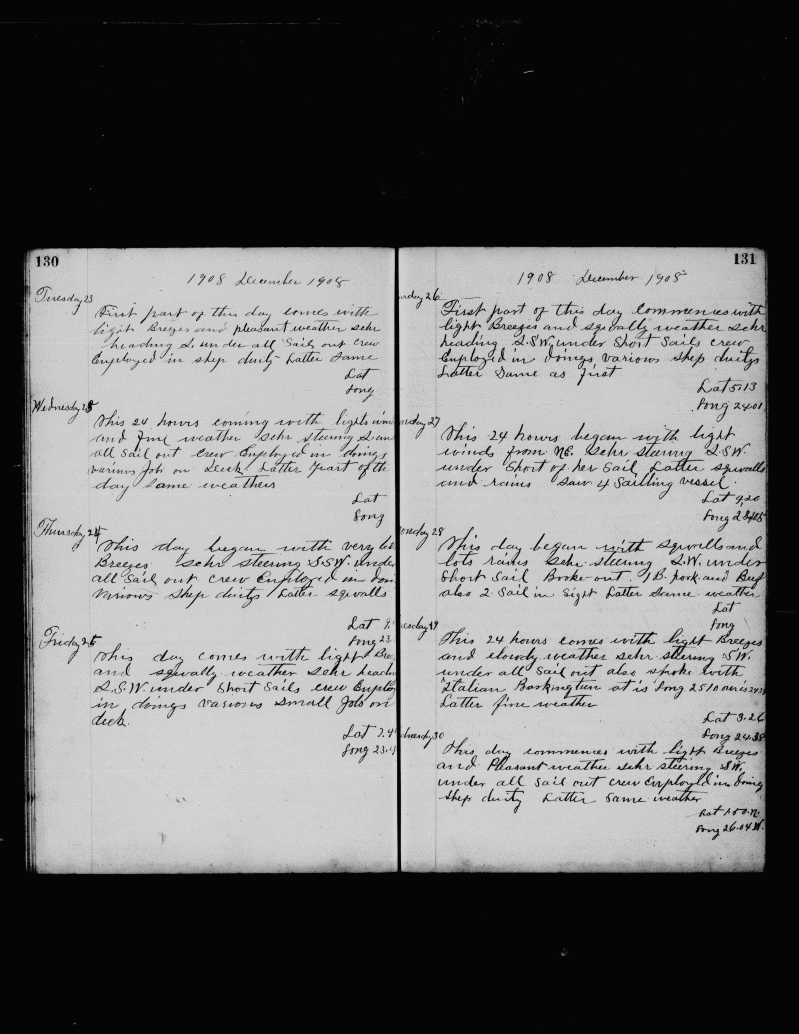 130
1908 December 1908
Tuesday 23
First part of this day comes with
light Breezes and pleasant weather schr
heading S. under all Sail out crew
Employed in ship duity Latter Same
Lat
Long
Wednesday
This 24 hours coming with light
and fine weather schr steering
all Sail out crew Employed in doings
various Job on Deck Latter part of th
day Same weathers
Lat
Long
Thursday
This day began with very
Breezes schr steering S.SW. under
all Sail out crew Employed in
various ship duitys Latter sqwalls
Lat
Long 23
Friday 25
This day comes with light Bre
and sqwally weather schr headin
S.S.W. under Short Sails crew Employ
in doings various small Job on
deck
Lat 7.4
Long 23.
131
1908 December 1908
urday 26
First part of this day Commences with
light Breezes and sqwally weather Schr
heading S.SW, under Short Sails crew
Employed in doings various ship duitys
Latter Same as first
Lat 5.13
Long 24.01
nday 27
This 24 hours began with light
winds from NE. schr steering S.SW.
under Short of her Sail Latter sqwalls
and rains saw 4 Sailling vessel.
Lat 4,20
Long
onday 28
This day began with sqwalls and
lots rains schr steering S.W. under
Short Sail Broke out 1 B. pork and Beef
also 2 Sail in sight Latter Same weather
Lat
Long
uesday
This 24 hours comes with light Breezes
and clowdy weather schr steering SW.
under all Sail out also spoke with
Italian Barkington at is Long 25 10
Latter fine weather
Lat 3.26
Long 24.38
dnesday 30
This day commences with light Breezes
and Pleasant weather schr steering SW,
under all Sail out crew Employed in doing
ship duity Latter Same weather
Lat 1.00.N.
Long 26.04 W.